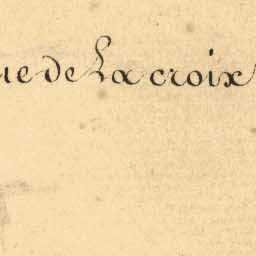 ue de Lacroix